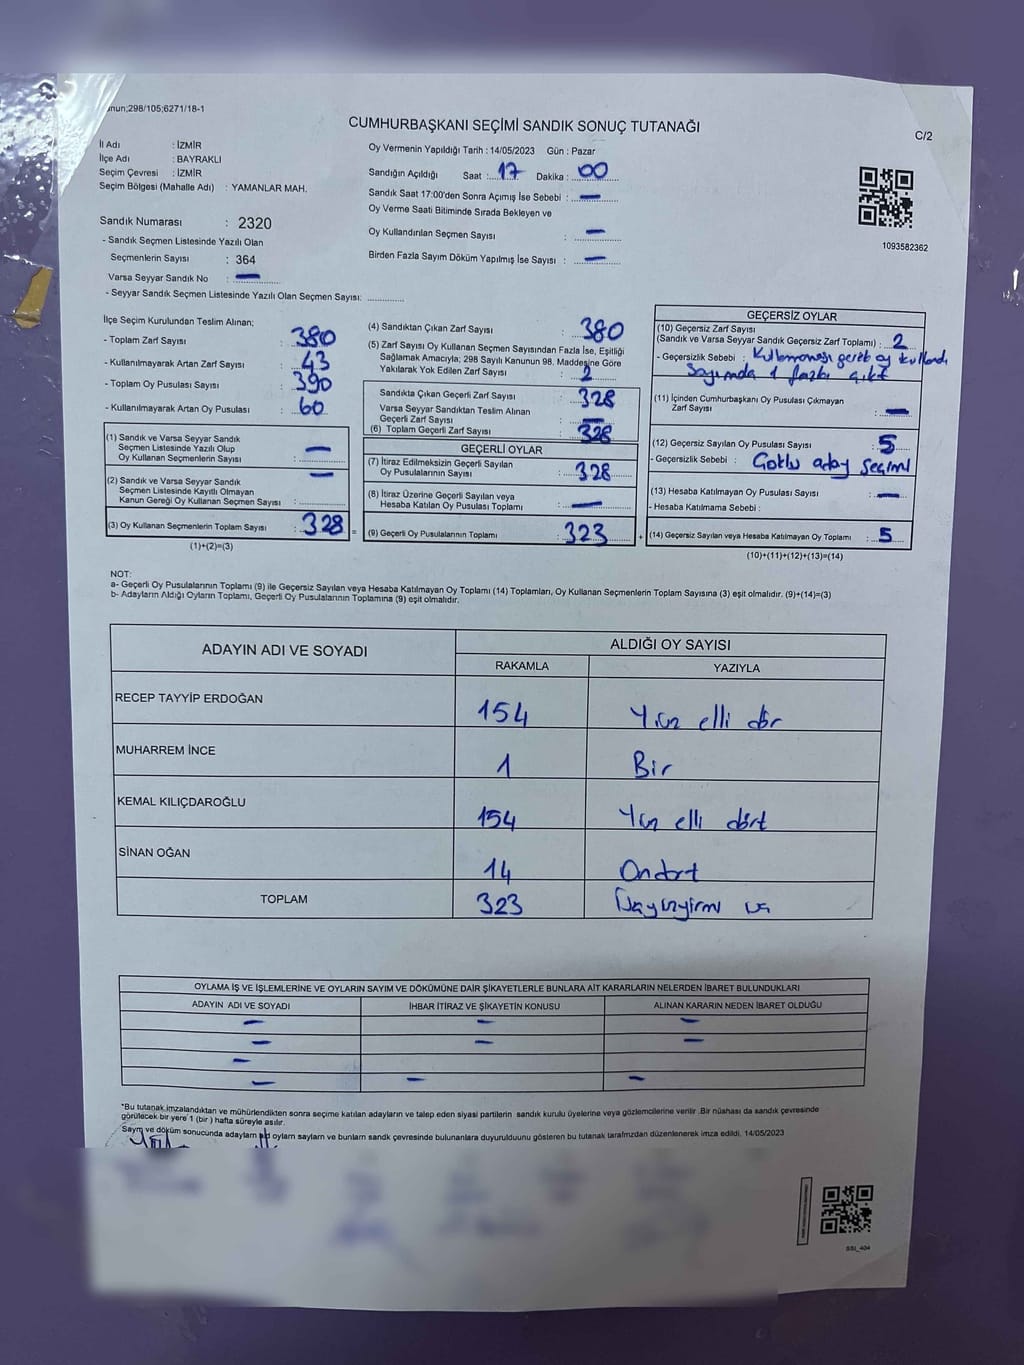 nun;298/105;6271/18-1
CUMHURBAŞKANI SEÇİMİ SANDIK SONUÇ TUTANAĞI
C/2
İl Adı : İZMİR
İlçe Adı : BAYRAKLI
Seçim Çevresi : İZMİR
Seçim Bölgesi (Mahalle Adı) : YAMANLAR MAH.
Oy Vermenin Yapıldığı Tarih : 14/05/2023 Gün : Pazar
Sandığın Açıldığı Saat : 17 Dakika : 00
Sandık Saat 17:00'den Sonra Açımış İse Sebebi : —
Oy Verme Saati Bitiminde Sırada Bekleyen ve
Oy Kullandırılan Seçmen Sayısı : —
Birden Fazla Sayım Döküm Yapılmış İse Sayısı : —
1093582362
Sandık Numarası : 2320
- Sandık Seçmen Listesinde Yazılı Olan
Seçmenlerin Sayısı : 364
Varsa Seyyar Sandık No : —
- Seyyar Sandık Seçmen Listesinde Yazılı Olan Seçmen Sayısı: ..............
İlçe Seçim Kurulundan Teslim Alınan;
- Toplam Zarf Sayısı : 380
- Kullanılmayarak Artan Zarf Sayısı : 43
- Toplam Oy Pusulası Sayısı : 390
- Kullanılmayarak Artan Oy Pusulası : 60
(1) Sandık ve Varsa Seyyar Sandık
Seçmen Listesinde Yazılı Olup
Oy Kullanan Seçmenlerin Sayısı : —
(2) Sandık ve Varsa Seyyar Sandık
Seçmen Listesinde Kayıtlı Olmayan
Kanun Gereği Oy Kullanan Seçmen Sayısı : —
(3) Oy Kullanan Seçmenlerin Toplam Sayısı : 328 =
(1)+(2)=(3)
(4) Sandıktan Çıkan Zarf Sayısı : 380
(5) Zarf Sayısı Oy Kullanan Seçmen Sayısından Fazla İse, Eşitliği
Sağlamak Amacıyla; 298 Sayılı Kanunun 98. Maddesine Göre
Yakılarak Yok Edilen Zarf Sayısı : 2
Sandıkta Çıkan Geçerli Zarf Sayısı : 328
Varsa Seyyar Sandıktan Teslim Alınan
Geçerli Zarf Sayısı : —
(6) Toplam Geçerli Zarf Sayısı : 328
GEÇERLİ OYLAR
(7) İtiraz Edilmeksizin Geçerli Sayılan
Oy Pusulalarının Sayısı : 328
(8) İtiraz Üzerine Geçerli Sayılan veya
Hesaba Katılan Oy Pusulası Toplamı : —
(9) Geçerli Oy Pusulalarının Toplamı : 323 +
GEÇERSİZ OYLAR
(10) Geçersiz Zarf Sayısı
(Sandık ve Varsa Seyyar Sandık Geçersiz Zarf Toplamı) : 2
- Geçersizlik Sebebi : oy
1 fazla çıktı
(11) İçinden Cumhurbaşkanı Oy Pusulası Çıkmayan
Zarf Sayısı : —
(12) Geçersiz Sayılan Oy Pusulası Sayısı : 5
- Geçersizlik Sebebi : Çoklu aday seçimi
(13) Hesaba Katılmayan Oy Pusulası Sayısı : —
- Hesaba Katılmama Sebebi :
(14) Geçersiz Sayılan veya Hesaba Katılmayan Oy Toplamı : 5
(10)+(11)+(12)+(13)=(14)
NOT:
a- Geçerli Oy Pusulalarının Toplamı (9) ile Geçersiz Sayılan veya Hesaba Katılmayan Oy Toplamı (14) Toplamları, Oy Kullanan Seçmenlerin Toplam Sayısına (3) eşit olmalıdır. (9)+(14)=(3)
b- Adayların Aldığı Oyların Toplamı, Geçerli Oy Pusulalarının Toplamına (9) eşit olmalıdır.
ADAYIN ADI VE SOYADI ALDIĞI OY SAYISI
RAKAMLA YAZIYLA
RECEP TAYYİP ERDOĞAN 154 Yüz elli dör
MUHARREM İNCE 1 Bir
KEMAL KILIÇDAROĞLU 154 Yüz elli dört
SİNAN OĞAN 14 Ondört
TOPLAM 323
OYLAMA İŞ VE İŞLEMLERİNE VE OYLARIN SAYIM VE DÖKÜMÜNE DAİR ŞİKAYETLERLE BUNLARA AİT KARARLARIN NELERDEN İBARET BULUNDUKLARI
ADAYIN ADI VE SOYADI İHBAR İTİRAZ VE ŞİKAYETİN KONUSU ALINAN KARARIN NEDEN İBARET OLDUĞU
— — —
— — —
—
— — —
*Bu tutanak imzalandıktan ve mühürlendikten sonra seçime katılan adayların ve talep eden siyasi partilerin sandık kurulu üyelerine veya gözlemcilerine verilir .Bir nüshası da sandık çevresinde
görülecek bir yere 1 (bir ) hafta süreyle asılır.
Sayım ve döküm sonucunda adayların oyların sayların ve bunların sandık çevresinde bulunanlara duyurulduunu gösteren bu tutanak tarafımızdan düzenlenerek imza edildi. 14/05/2023
SSI_404